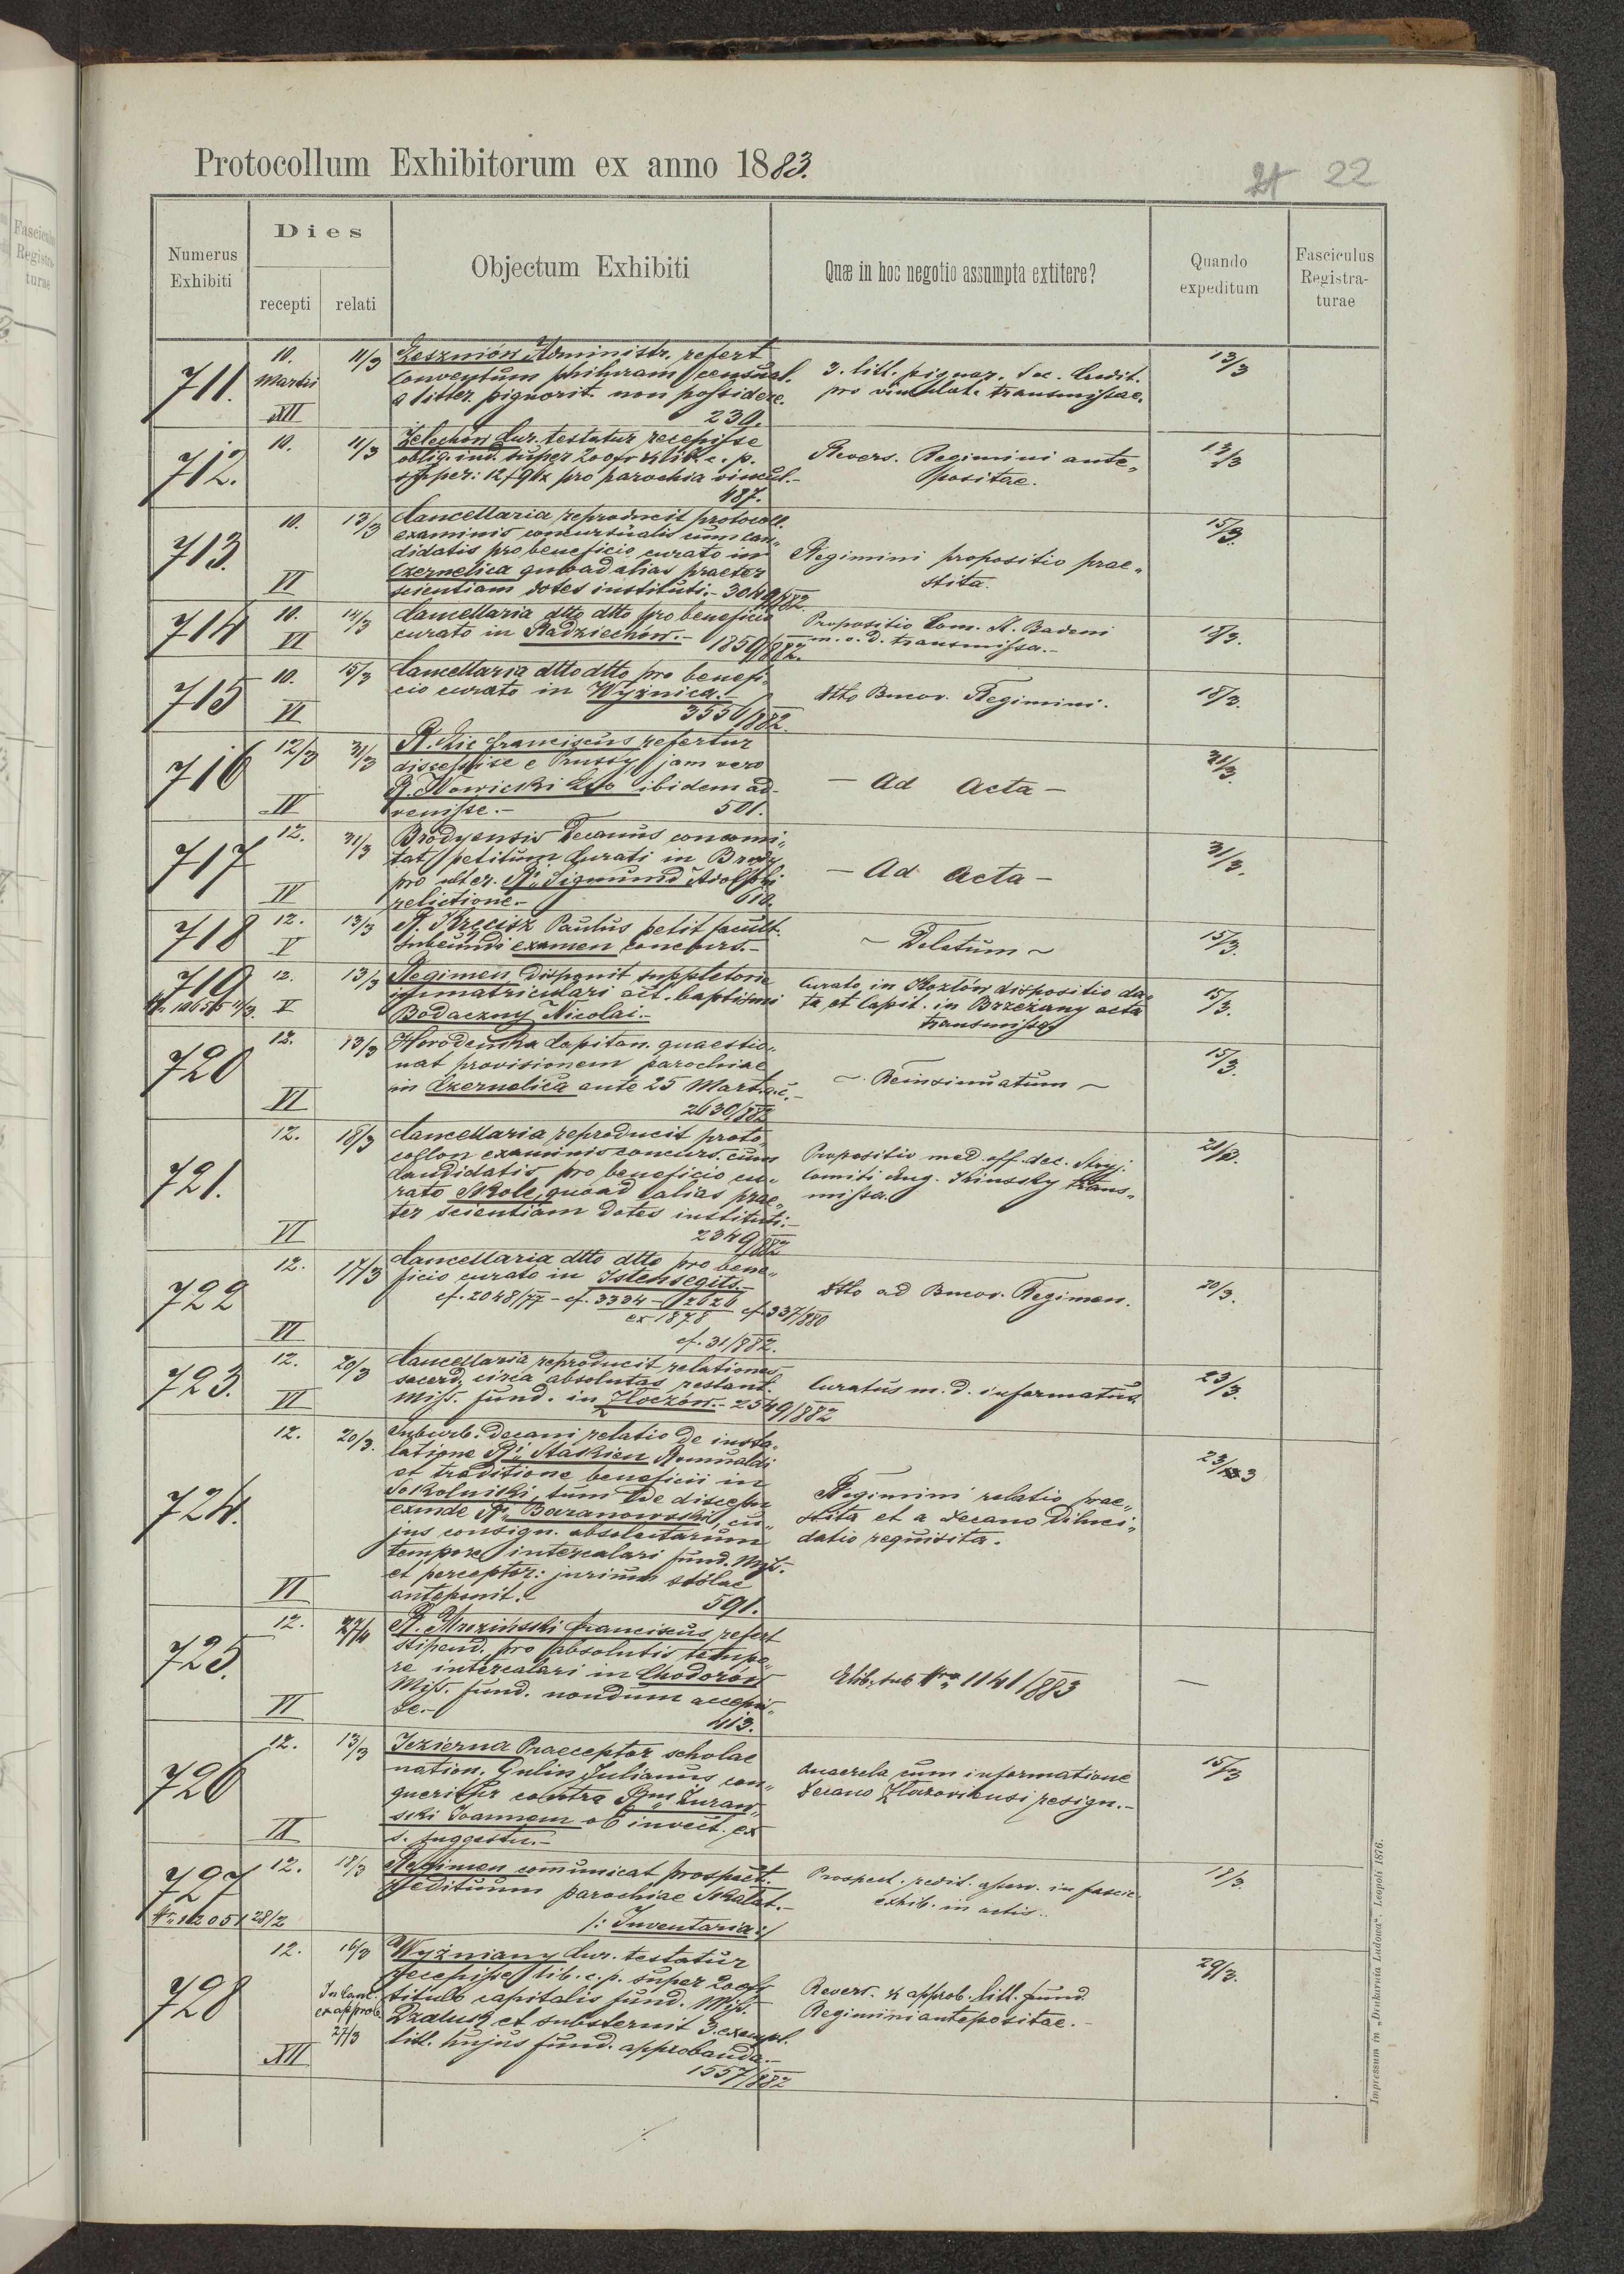 Protocollum Exhibitorum ex anno 1883.
21 22
Numerus Exhibiti
Dies
recepti
relati
Objectum Exhibiti
Quæ in hoc negotio assumpta extitere?
Quando expeditum
Fasciculus Registra-
turae
711.
10. Martii
XII
11/3
Leszniów Administr. refert
conventum censual.
a litter. pignorit. non possidere.
239.
3. litt. pignor. Soc. Credit.
pro vinculat. transmissae.
13/3
712.
10.
11/3
Żelechów Cur. testatur recepisse
oblig. ind. super 200 fr & lib. c. p.
super: 12 f 90x pro parochia vincul.-
487.
Revers. Regimini ante„
positae.
13/3
713.
10.
VI
13/3
Cancellaria reproducit protocoll.
examinis concursualis cum can„
didatis pro beneficio curato in
Czernelica quoad alias praeter
scientiam dotes instituti.- 3049/882.
Regimini propositio prae„
stita.
15/3.
714
10.
VI
14/3
Cancellaria dtto dtto pro beneficio
curato in Radziechów.- 1859/882.
Propositio Com. St. Badeni
m. o. d. transmissa.-
18/3.
715
10.
VI
15/3
Cancellaria dtto dtto pro benefi-
cio curato in Wyżnica.-
3556/882.
dtto Bucov. Regimini.
18/3.
716
12/3
IV
31/3
R. Franciscus refertur
discessisse e Prussy, jam vero
R. Nowicki Leo ibidem ad-
venisse.- 501.
- Ad Acta -
31/3.
717
12.
IV
31/3
Brodyensis Decanus concomi„
tat petitum Curati in Brody
pro ulter. Ri Sigmund Adolphi
relictione.- 610.
- Ad Acta -
31/3.
718
12.
V
13/3
R. Kręcisz Paulus petit facult.
subeundi examen concurs.-
~ Delatum ~
15/3.
719
12.
V
13/3
Regimen disponit suppletorie
immatriculari act. baptismi
Bodaczny Nicolai.-
Curato in Kozłów dispositio da„
ta et Capit. in Brzeżany acta
transmissa
15/3.
720
12.
VI
13/3
Horodenka Capitan. quaestio„
nat provisionem parochiae
in Czernelica ante 25 Mart. a. c.-
2630/882
~ Reinsinuatum ~
15/3.
721.
12.
VI
18/3
Cancellaria reproducit proto„
collon examinis concurs. cum
Candidatis pro beneficio cu„
rato Skole, quoad alias prae„
ter scientiam dotes instituti.-
2349/882
Propositio med. off. dec. Stryj.
Comiti Aug. Kinsky trans„
missa.
21/3.
722
12.
VI
17/3
Cancellaria dtto dtto pro bene„
ficio curato in Istensegits.-
cf. 2048/77 - cf. 3334 - 2626 ex 1878 cf 337/880
cf. 31/882.
dtto ad Bucov. Regimen.
20/3.
723.
12.
VI
20/3
Cancellaria reproducit relationes
sacerd. circa absolutas restant.
Miss. fund. in Złoczów.- 2549/882
Curatus m. d. informatus.
23/3.
724.
12.
VI
20/3.
Suburb. Decani relatio de insta„
latione Ri Staskien Romualdi
et traditione beneficii in
Sokolniki, tum de discessu
exinde Ri Baranowski, cu„
jus consign. absolutarum
tempore intercalari fund. Miss.
et perceptor: jurium stolae
anteponit. 591.
Regimini relatio prae„
stita et a Decano diluci„
datio requisita.
23/3
725.
12.
VI
27/4
R. Mroziński Franciscus refert
stipend. pro absolutis tempo„
re intercalari in Chodorów
Miss. fund. nondum accepis„
se.-
413.
sub Nro 1141/883
-
726
12.
IX
13/3
Jezierna Praeceptor scholae
nation. Gulin Julianus con„
queritur contra Rum Żuraw„
ski Joannem ob invect. ex
s. suggestu.-
Querela cum informatione
Decano resign.-
15/3
727
Nr. 12051 28/2
12.
18/3
Regimen communicat prospect.
redituum parochiae Skałat.-
/: Inventaria :/
Prospect. redit. asserv. in fascic.
exhib. in actis..
18/3.
728
12.
XII
16/3
In Canc.
ex approb.
27/3
Wyżniany Cur. testatur
recepisse lib. c. p. super 200 fr
titulo capitalis fund. Miss.
et substernit 3 exempl.
litt. hujus fund. approbanda.-
1557/882
Revers. & approb. litt. fund.
Regimini antepositae.-
29/3.
Impressum in „Drukarnia Ludowa“. Leopoli 1876.